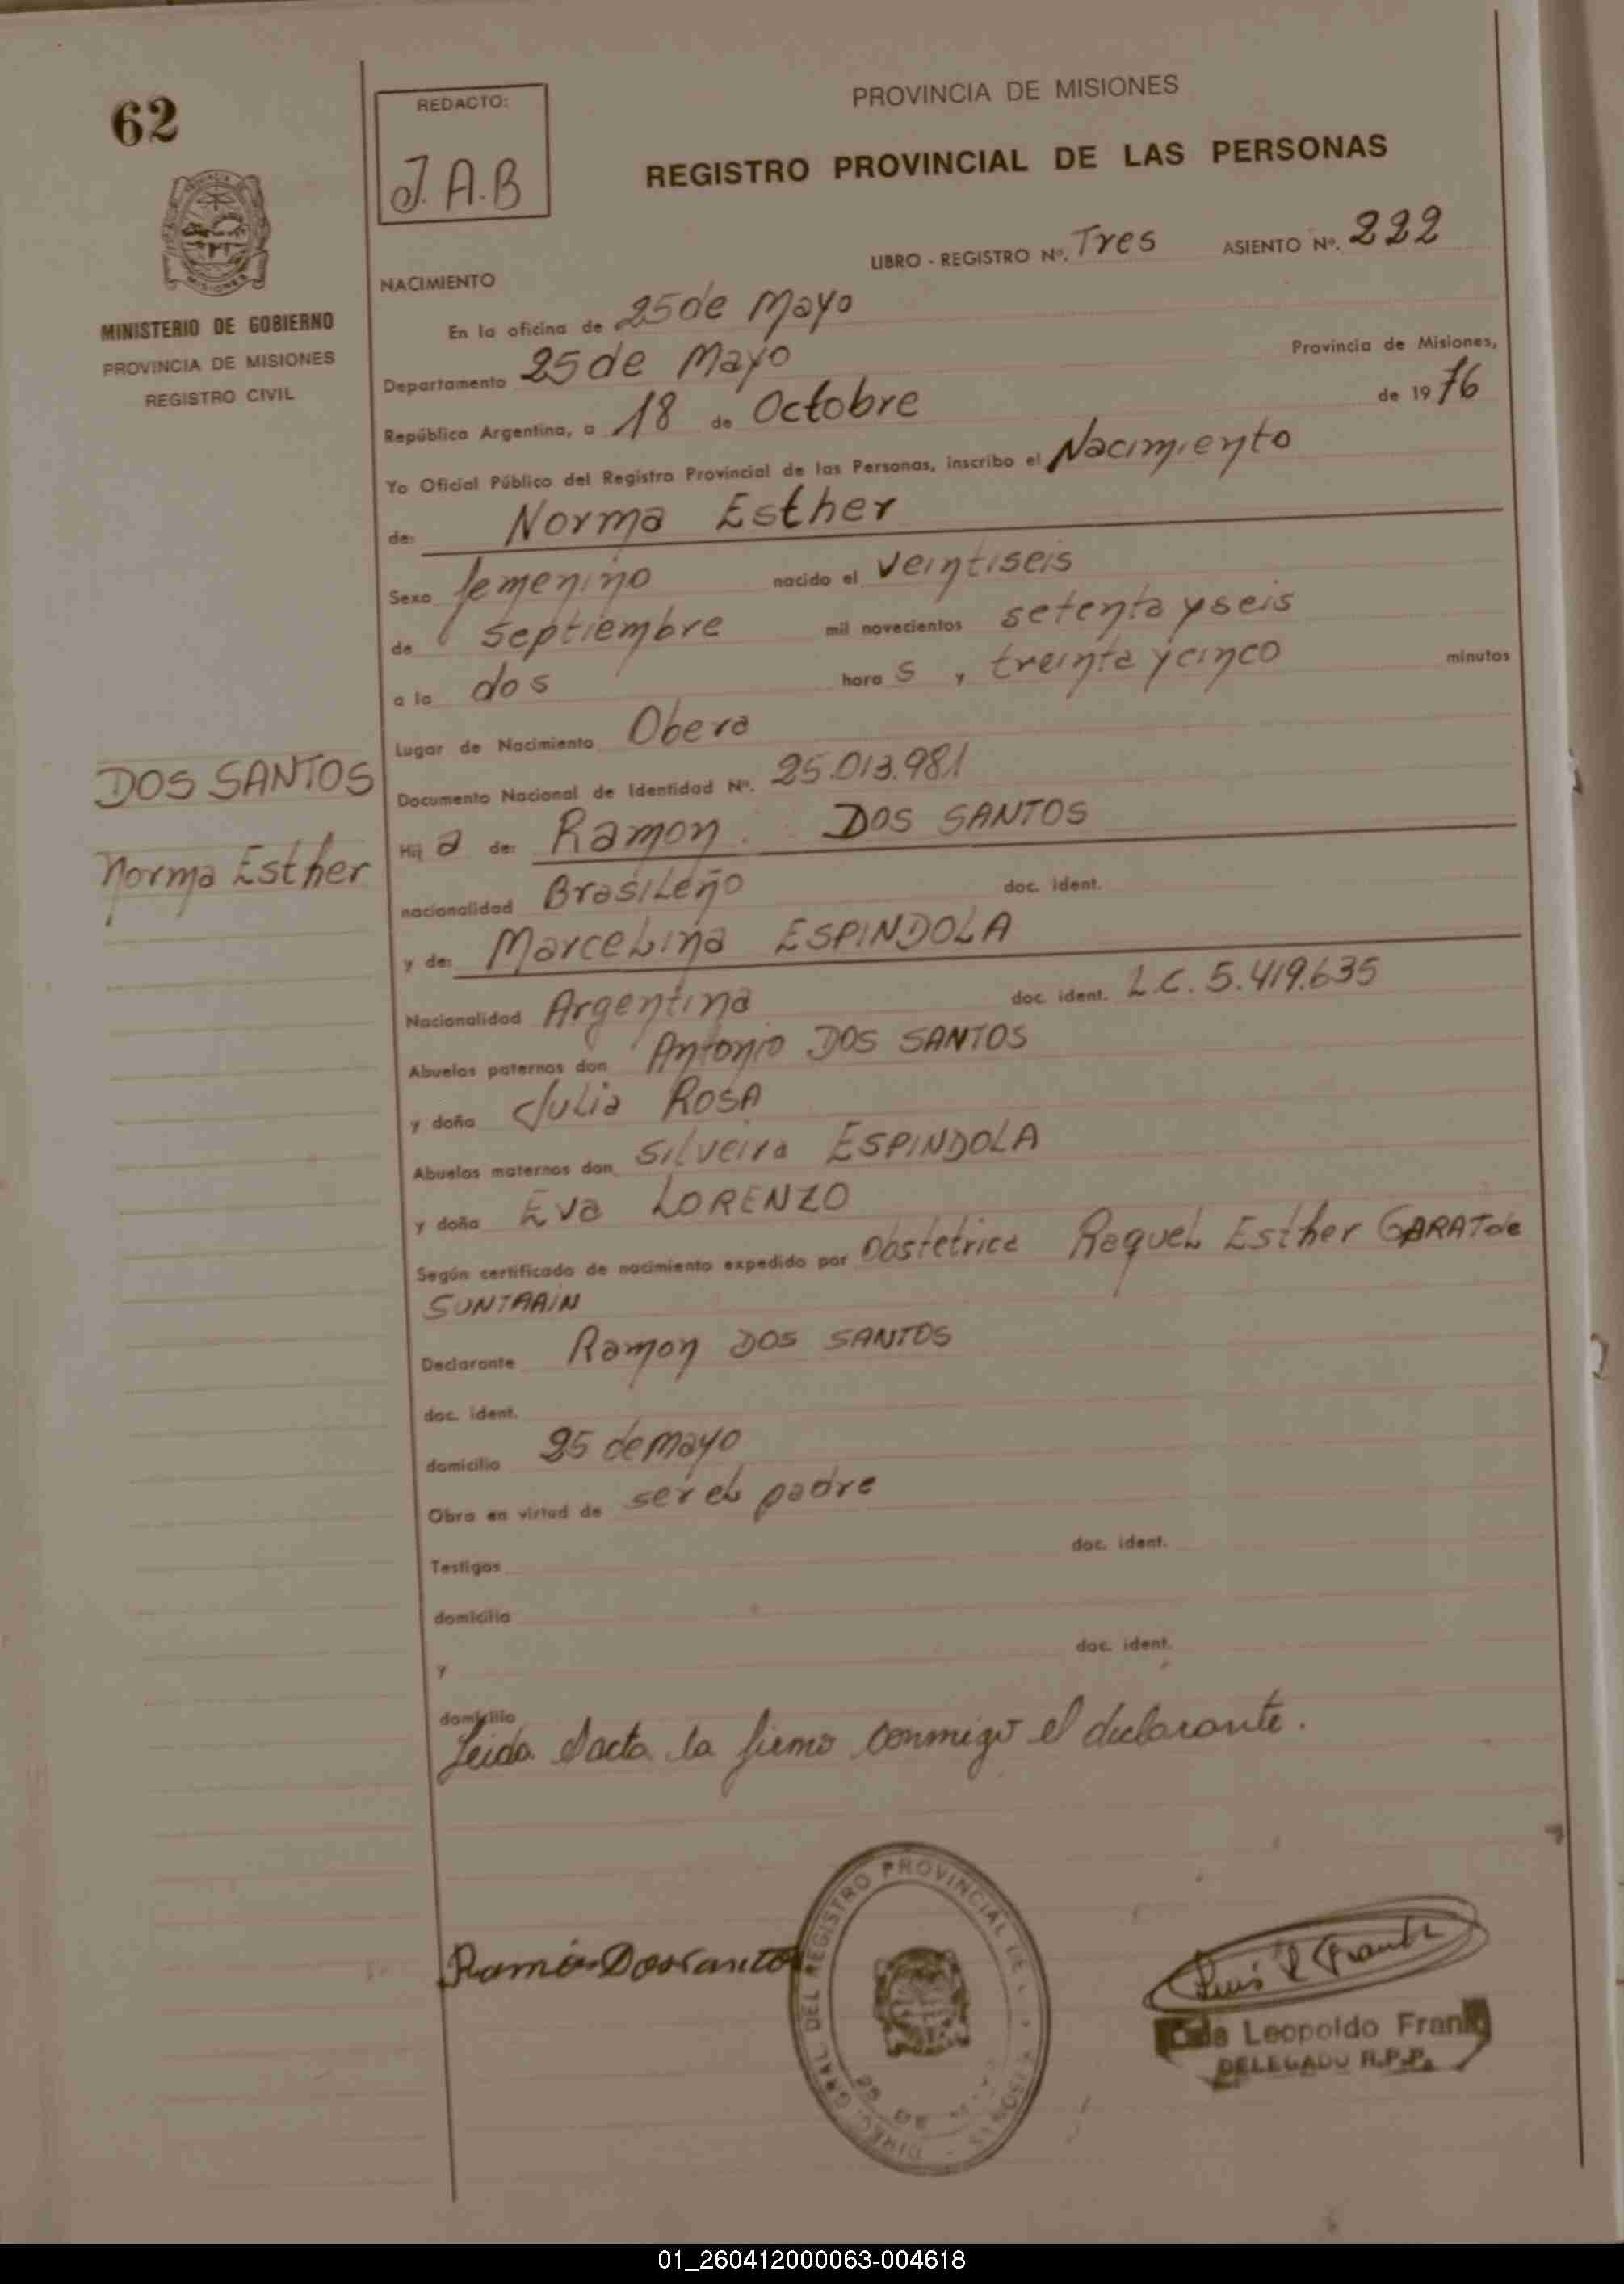 62
REDACTO:
J.A.B
PROVINCIA DE MISIONES
REGISTRO PROVINCIAL DE LAS PERSONAS
LIBRO - REGISTRO Nº. Tres ASIENTO Nº. 222
MINISTERIO DE GOBIERNO
PROVINCIA DE MISIONES
REGISTRO CIVIL
NACIMIENTO
En la oficina de 25 de Mayo
Departamento 25 de Mayo Provincia de Misiones,
República Argentina, a 18 de Octobre de 1976
Yo Oficial Público del Registro Provincial de las Personas, inscribo el Nacimiento
de: Norma Esther
Sexo femenino nacido el veintiseis
de septiembre mil novecientos setenta y seis
a la dos hora s y treinta y cinco minutos
Lugar de Nacimiento Obera
DOS SANTOS
Norma Esther
Documento Nacional de Identidad Nº. 25.013.981
Hij a de: Ramon DOS SANTOS
nacionalidad Brasileño doc. ident.
y de: Marcelina ESPINDOLA
Nacionalidad Argentina doc. ident. L.C. 5.419.635
Abuelos paternos don Antonio DOS SANTOS
y doña Julia ROSA
Abuelos maternos don Silveira ESPINDOLA
y doña Eva LORENZO
Según certificado de nacimiento expedido por Obstetrica Raquel Esther GARAT de
Declarante Ramon DOS SANTOS
doc. ident.
domicilio 25 de mayo
Obra en virtud de ser el padre
Testigos doc. ident.
domicilio
y doc. ident.
domicilio
Leida l'acta la firma conmigo el declarante.
Ramón Dos Santos
DIREC. GRAL. DEL REGISTRO PROVINCIAL DE
25 DE
Leopoldo Frank
DELEGADO R.P.P.
01_260412000063-004618